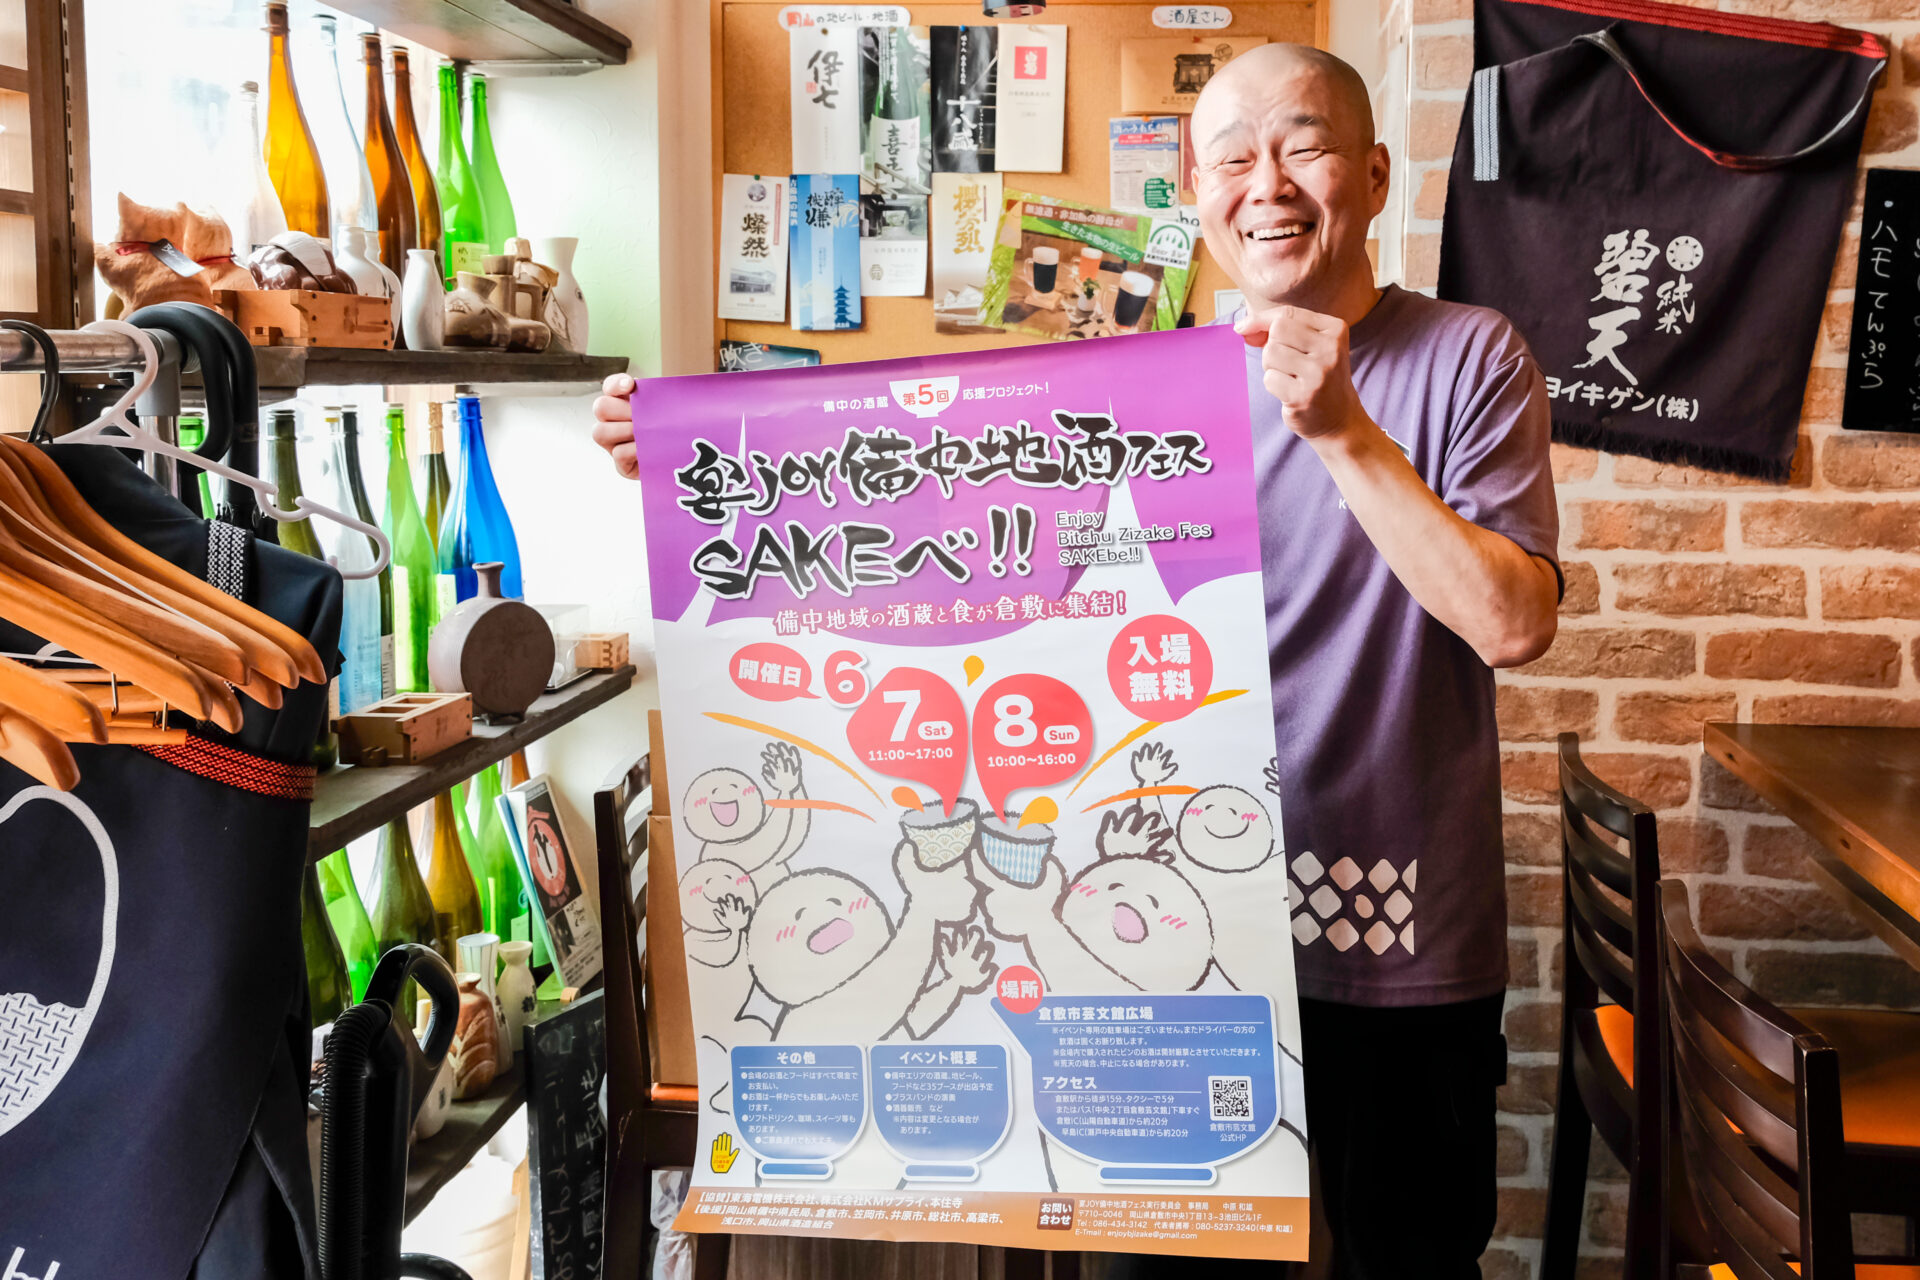 岡山の地ビール・地酒
酒屋さん
伊七
燦然
櫻
無濾過・非加熱の酵母が
生きた本物の生ビール
吹き
純米
碧天
ヨイキゲン(株)
・ハモてんぷら
備中の酒蔵 第5回 応援プロジェクト!
宴JOY備中地酒フェス
SAKEべ!!
Enjoy
Bitchu Zizake Fes
SAKEbe!!
備中地域の酒蔵と食が倉敷に集結!
開催日 6
7 Sat
11:00~17:00
8 Sun
10:00~16:00
入場
無料
場所
倉敷市芸文館広場
※イベント専用の駐車場はございません。またドライバーの方の
飲酒は固くお断り致します。
※会場内で購入されたビンのお酒は開封厳禁とさせていただきます。
※荒天の場合、中止になる場合があります。
アクセス
倉敷駅から徒歩15分、タクシーで5分
またはバス「中央2丁目倉敷芸文館」下車すぐ
倉敷IC(山陽自動車道)から約20分
早島IC(瀬戸中央自動車道)から約20分
倉敷市芸文館
公式HP
その他
●会場のお酒とフードはすべて現金で
お支払い。
●お酒は一杯からでもお楽しみいただ
けます。
●ソフトドリンク、珈琲、スイーツ等も
あります。
●ご家族連れでも大丈夫
イベント概要
●備中エリアの酒蔵、地ビール、
フードなど35ブースが出店予定
●ブラスバンドの演奏
●酒器販売 など
※内容は変更となる場合が
あります。
【協賛】東海電機株式会社、株式会社KMサプライ、本住寺
【後援】岡山県備中県民局、倉敷市、笠岡市、井原市、総社市、高梁市、
浅口市、岡山県酒造組合
お問い
合わせ
宴JOY備中地酒フェス実行委員会 事務局 中原 和雄
〒710-0046 岡山県倉敷市中央1丁目13-3池田ビル1F
Tel : 086-434-3142 代表者携帯 : 080-5237-3240(中原 和雄)
E-Tmail : enjoybjizake@gmail.com